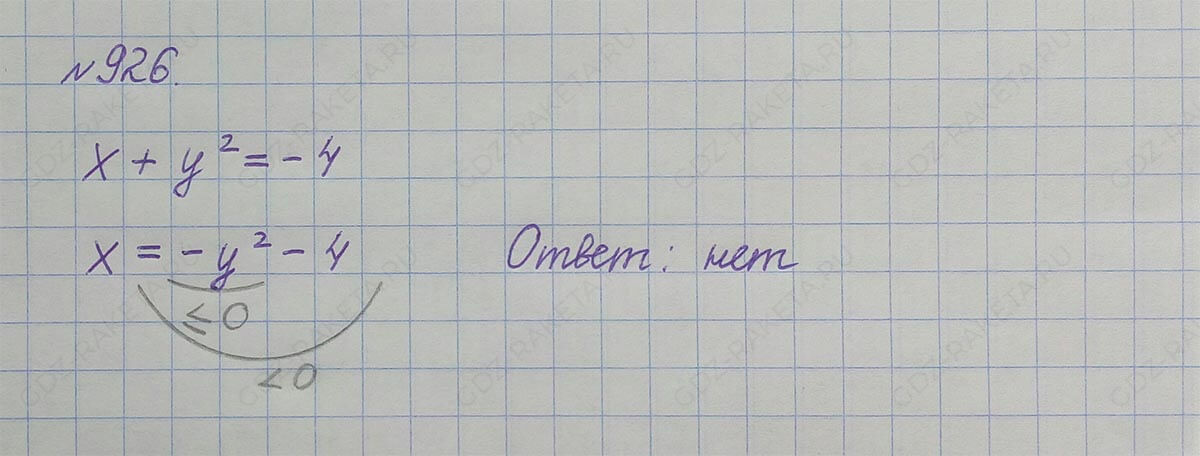 №926.
x + y² = -4
x = -y² - 4 Ответ: нет
≤ 0
< 0
GDZ-RAKETA.RU